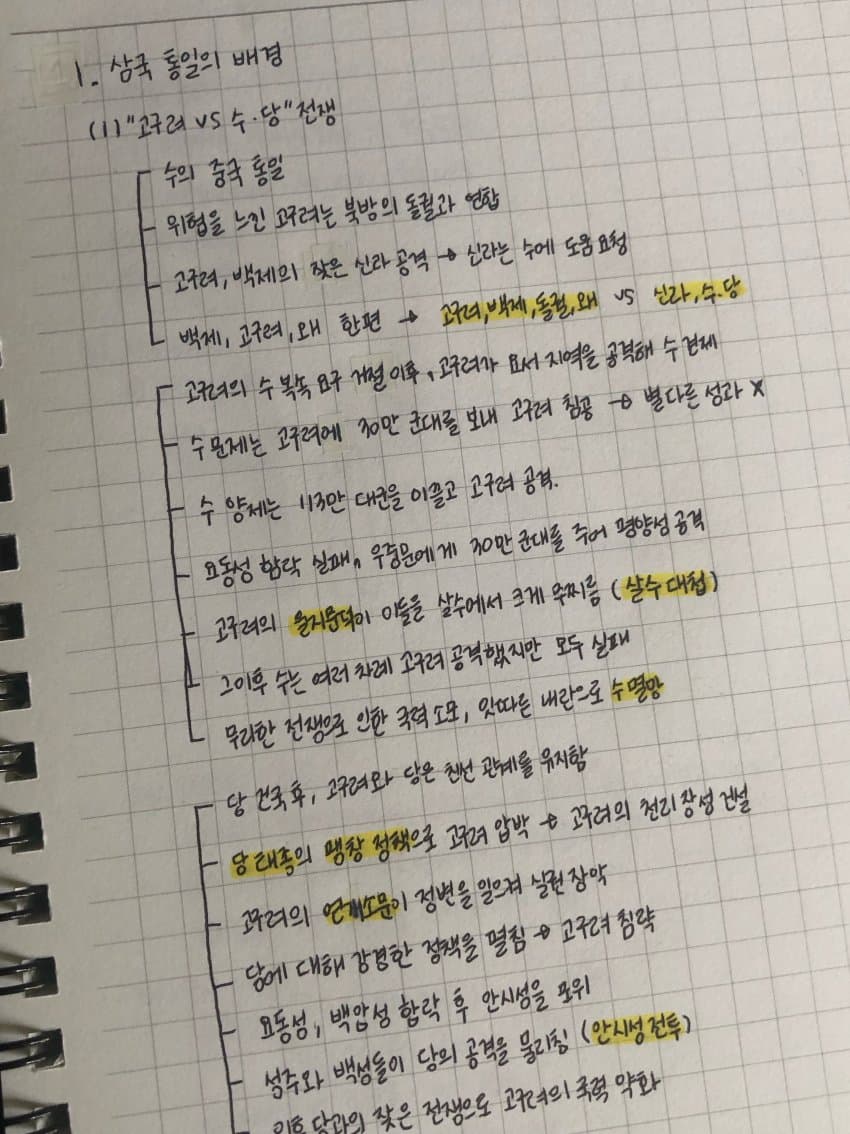 1. 삼국 통일의 배경
(1) "고구려 VS 수·당" 전쟁
수의 중국 통일
위협을 느낀 고구려는 북방의 돌궐과 연합
고구려, 백제의 잦은 신라 공격 → 신라는 수에 도움 요청
백제, 고구려, 왜 한편 → 고구려, 백제, 돌궐, 왜 VS 신라, 수·당
고구려의 수 복속 요구 거절 이후, 고구려가 요서 지역을 공격해 수 견제
수 문제는 고구려에 30만 군대를 보내 고구려 침공 → 별다른 성과 X
수 양제는 113만 대군을 이끌고 고구려 공격.
요동성 함락 실패, 우중문에게 30만 군대를 주어 평양성 공격
고구려의 을지문덕이 이들을 살수에서 크게 무찌름 (살수 대첩)
그 이후 수는 여러 차례 고구려 공격했지만 모두 실패
무리한 전쟁으로 인한 국력 소모, 잇따른 내란으로 수 멸망
당 건국 후, 고구려와 당은 친선 관계를 유지함
당 태종의 팽창 정책으로 고구려 압박 → 고구려의 천리장성 건설
고구려의 연개소문이 정변을 일으켜 실권 장악
당에 대해 강경한 정책을 펼침 → 고구려 침략
요동성, 백암성 함락 후 안시성을 포위
성주와 백성들이 당의 공격을 물리침 (안시성 전투)
이후 당과의 잦은 전쟁으로 고구려의 국력 약화